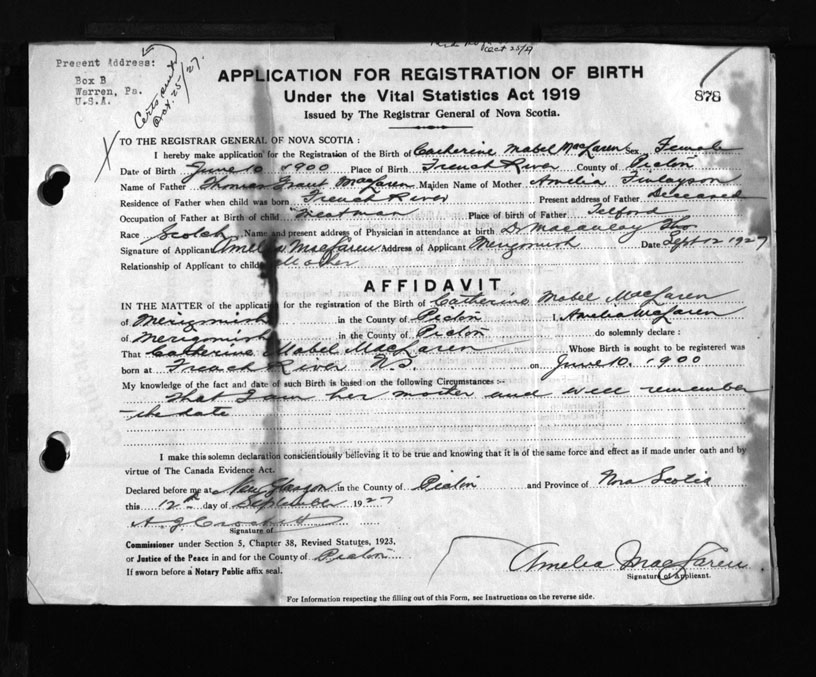 Oct 25/27
Present Address:
Box B
Warren, Pa.
U.S.A.
Certs sent
Oct. 25-/27.
APPLICATION FOR REGISTRATION OF BIRTH
Under the Vital Statistics Act 1919
Issued by The Registrar General of Nova Scotia.
878
TO THE REGISTRAR GENERAL OF NOVA SCOTIA :
I hereby make application for the Registration of the Birth of Catherine Mabel MacLaren Sex Female
Date of Birth June 10 1900 Place of Birth French River County of Pictou
Name of Father Thomas Grant MacLaren Maiden Name of Mother Amelia Finlayson
Residence of Father when child was born French River Present address of Father Deceased
Occupation of Father at Birth of child Meatman Place of birth of Father Telford
Race Scotch Name and present address of Physician in attendance at birth Dr Macaulay
Signature of Applicant Amelia MacLaren Address of Applicant Merigomish Date Sept 12 1927
Relationship of Applicant to child Mother
AFFIDAVIT
IN THE MATTER of the application for the registration of the Birth of Catherine Mabel MacLaren
of Merigomish in the County of Pictou I, Amelia MacLaren
of Merigomish in the County of Pictou do solemnly declare :
That Catherine Mabel MacLaren Whose Birth is sought to be registered was
born at French River N.S. on June 10. 1900
My knowledge of the fact and date of such Birth is based on the following Circumstances :-
That I am her mother and well remember
the date
I make this solemn declaration conscientiously believing it to be true and knowing that it is of the same force and effect as if made under oath and by
virtue of The Canada Evidence Act.
Declared before me at New Glasgow in the County of Pictou and Province of Nova Scotia
this 12th day of September 1927
A. J. Crockett
Signature of
Commissioner under Section 5, Chapter 38, Revised Statutes, 1923,
or Justice of the Peace in and for the County of Pictou
If sworn before a Notary Public affix seal.
Amelia MacLaren
Signature of Applicant.
For Information respecting the filling out of this Form, see Instructions on the reverse side.